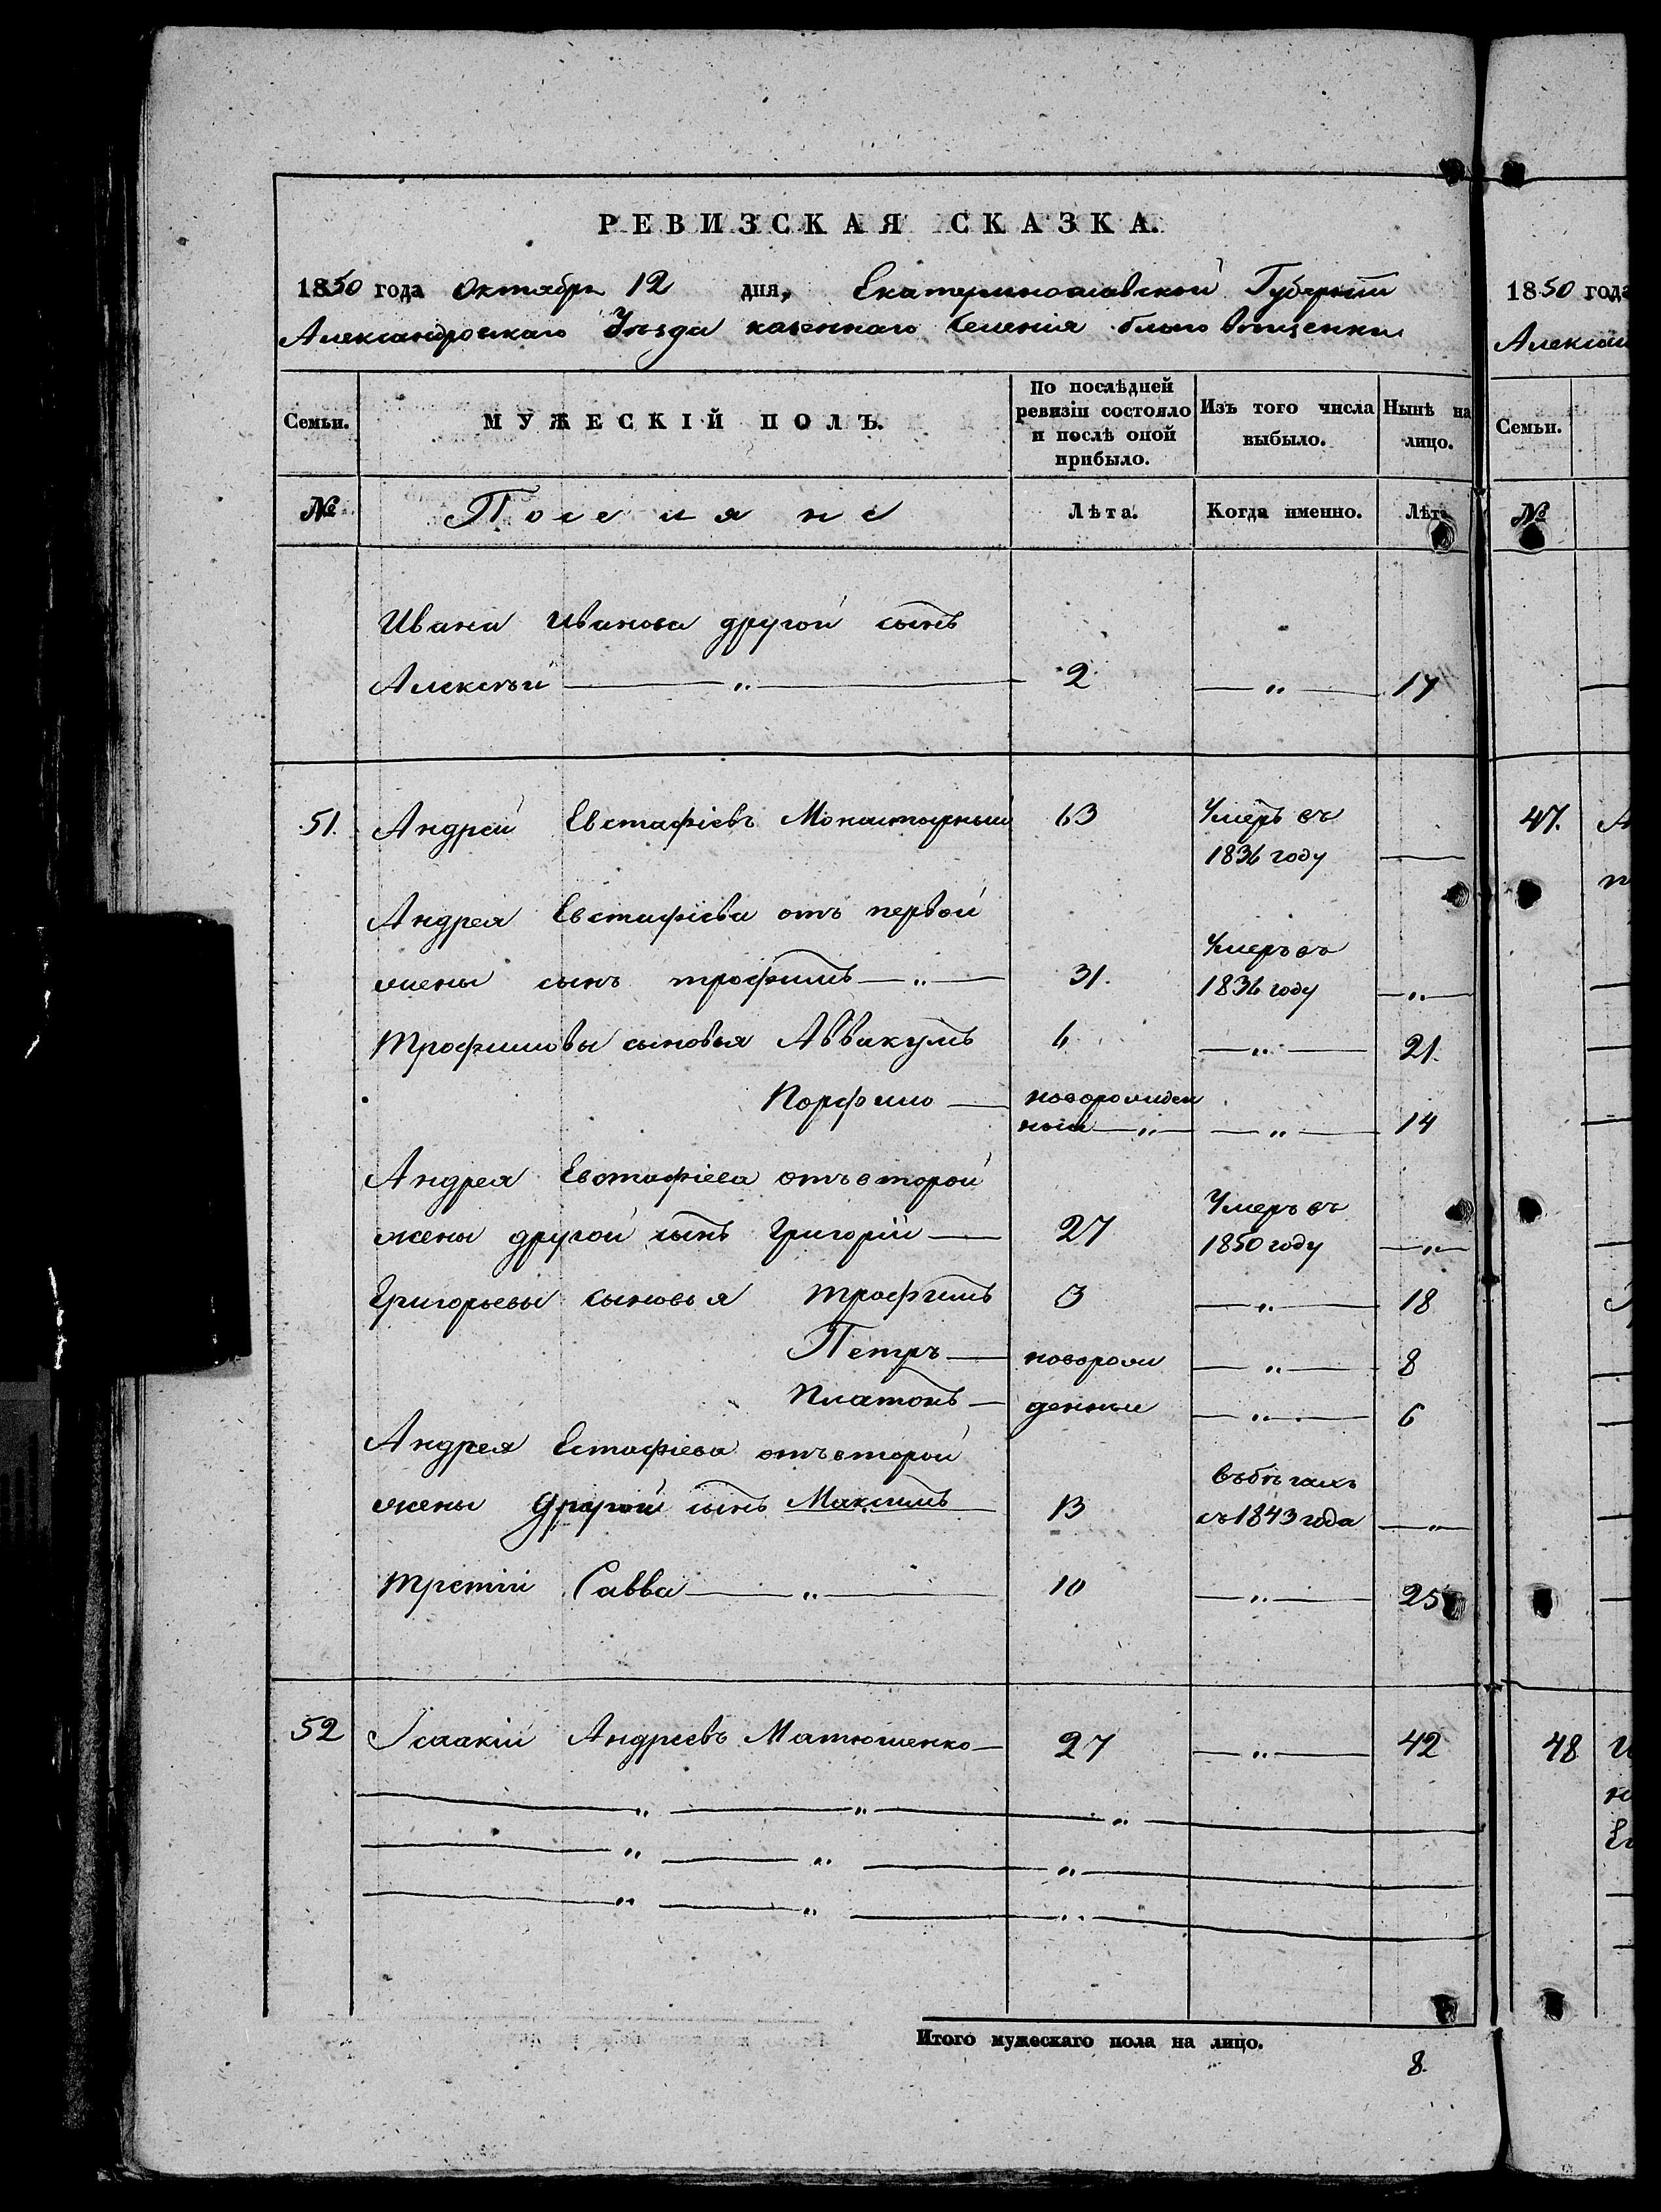 РЕВИЗСКАЯ СКАЗКА.
1850 года Октября 12 дня, Екатеринославской Губернии
Александровскаго Уѣзда казеннаго селенія
Семьи. МУЖЕСКІЙ ПОЛЪ. По послѣдней ревизіи состояло и послѣ оной прибыло. Изъ того числа выбыло. Нынѣ на лицо.
№ Поселяне Лѣта. Когда именно. Лѣта
Ивана Иванова другой сынъ
Алексѣй — „ — 2 — „ — 17
51. Андрей Евстафіевъ Монастырный 63 Умеръ въ
1836 году —
Андрея Евстафіева отъ первой
жены сынъ трофимъ — „ — 31. Умеръ въ
1836 году — „ —
Трофимовы сыновья Аввакумъ 6 — „ — 21.
Порфило — новорожден
ный — „ — — „ — 14
Андрея Евстафіева отъ второй
жены другой сынъ Григорій — 27 Умеръ въ
1850 году — „ —
Григорьевы сыновья трофимъ 3 — „ — 18
Петръ — новорож — „ — 8
Платонъ — денные — „ — 6
Андрея Естафіева отъ второй
жены другой сынъ Максимъ 13 въ бѣгахъ
съ 1843 года — „ —
третій Савва — „ — 10 — „ — 25
52 Ісаакій Андреевъ Матюшенко — 27 — „ — 42
Итого мужескаго пола на лицо.
8.
1850 года
Алексан
Семьи.
№
47. А
48